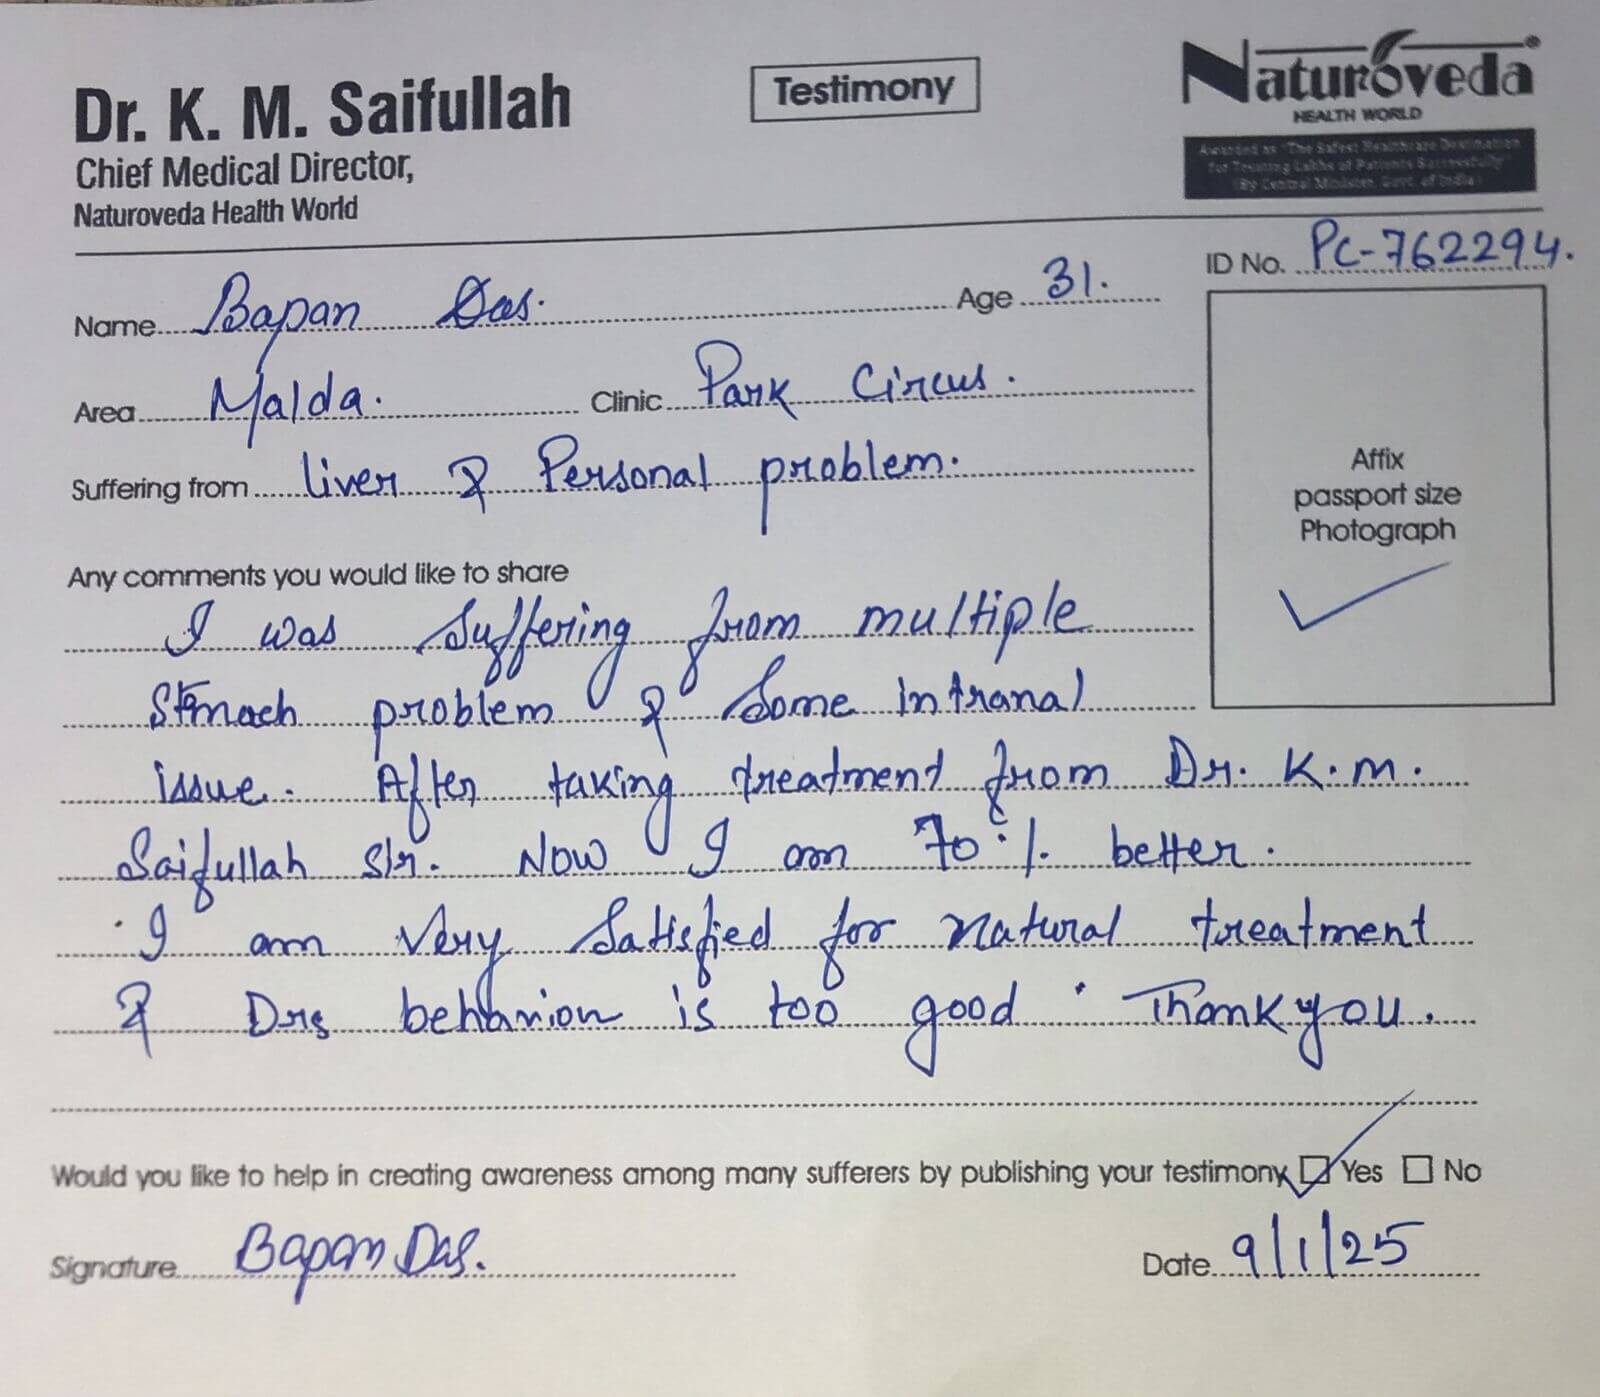 Dr. K. M. Saifullah
Chief Medical Director,
Naturoveda Health World
Testimony
Naturoveda
HEALTH WORLD
Awarded as "The Safest Healthcare Destination
for Treating Lakhs of Patients Successfully"
(By Central Minister, Govt. of India)
ID No. PC-762294.
Name Bapan Das. Age 31.
Area Malda. Clinic Park Circus.
Suffering from liver & Personal problem.
Affix
passport size
Photograph
Any comments you would like to share
I was suffering from multiple
Stomach problem & Some intranal
issue. After taking treatment from Dr. K.m.
Saifullah sir. Now I am 70% better.
I am very satisfied for natural treatment
& Drs behavior is too good. Thank you.
Would you like to help in creating awareness among many sufferers by publishing your testimony Yes No
Signature Bapan Das.
Date 9/1/25